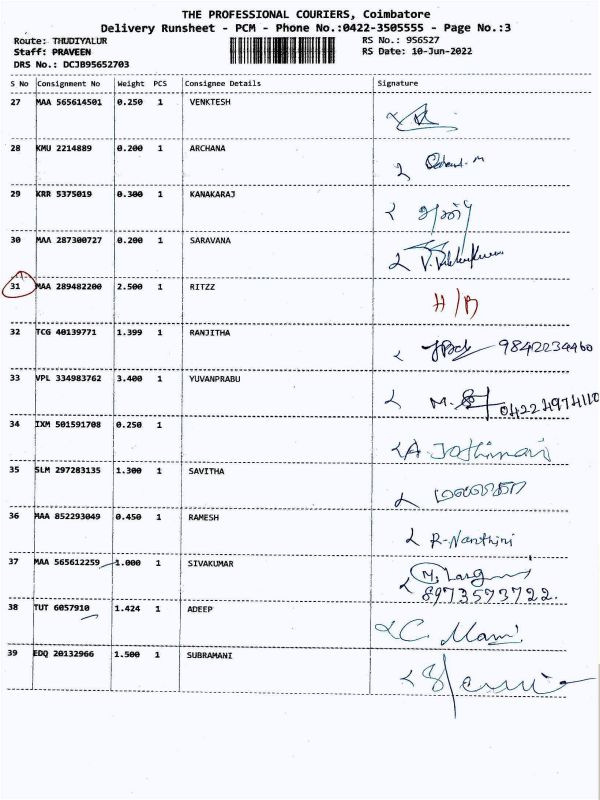 THE PROFESSIONAL COURIERS, Coimbatore
Delivery Runsheet - PCM - Phone No.:0422-3505555 - Page No.:3
Route: THUDIYALUR
RS No.: 9S6S27
Staff: PRAVEEN
RS Date: 10-Jun-2022
DRS No.: DCJB95652703
S No Consignment No Weight PCS Consignee Details Signature
27 MAA 565614501 0.250 1 VENKTESH
28 KMU 2214889 0.200 1 ARCHANA
29 KRR 5375019 0.300 1 KANAKARAJ
30 MAA 287300727 0.200 1 SARAVANA
31 MAA 289482200 2.500 1 RITZZ H/B
32 TCG 40139771 1.399 1 RANJITHA 9842234460
33 VPL 334983762 3.400 1 YUVANPRABU M. 04224974110
34 IXM 501591708 0.250 1 A. Jothimani
35 SLM 297283135 1.300 1 SAVITHA
36 MAA 852293049 0.450 1 RAMESH R-Nanthini
37 MAA 565612259 1.000 1 SIVAKUMAR
8973573722.
38 TUT 6057910 1.424 1 ADEEP C. Mani
39 EDQ 20132966 1.500 1 SUBRAMANI